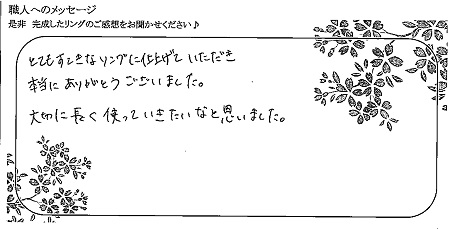 職人へのメッセージ
是非 完成したリングのご感想をお聞かせください♪
とてもすてきなリングに仕上げていただき
本当にありがとうございました。
大切に長く使っていきたいなと思いました。